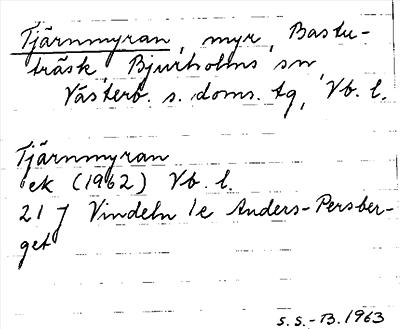 Tjärnmyran, myr, Bastu-
träsk, Bjurholms sn,
Västerb. s. doms. tg, Vb. l.
Tjärnmyran
ek (1962) Vb. l.
21 J Vindeln 1e Anders-Persber-
get
S.S.-B. 1963